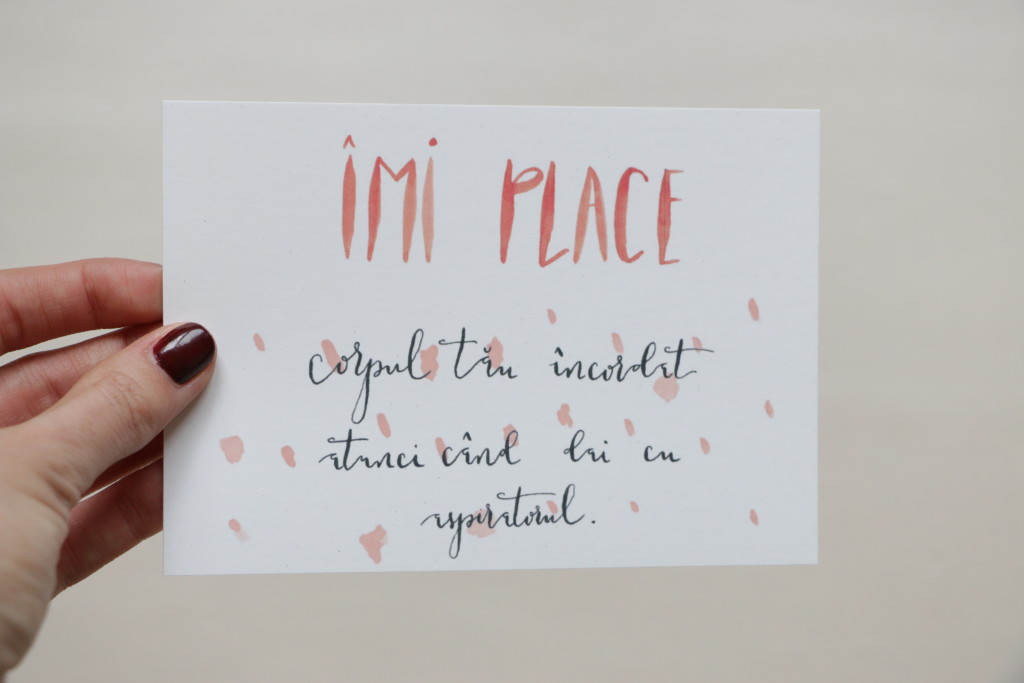 ÎMI PLACE
corpul tău încordat
atunci când dai cu
aspiratorul.